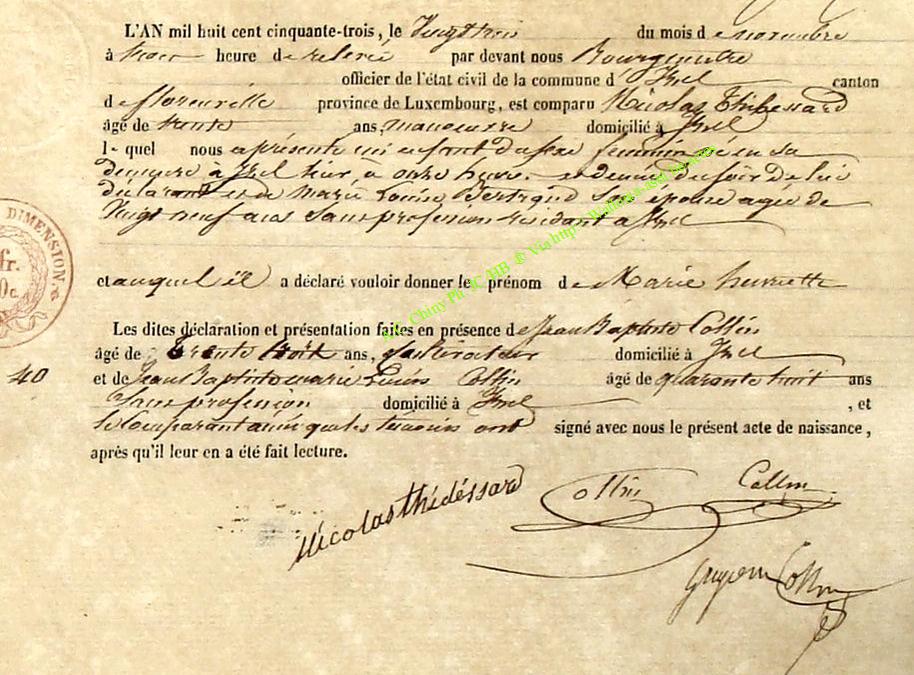 L'AN mil huit cent cinquante-trois, le Vingt trois du mois de novembre
à trois heure de relevée par devant nous Bourgmestre
officier de l'état civil de la commune d'Izel canton
de florenville province de Luxembourg, est comparu Nicolas Thidessard
âgé de trente ans, manoeuvre domicilié à Izel
lequel nous a présenté un enfant du sexe feminin né en sa
demeure à Izel hier, à onze heure et demie du soir de lui
déclarant et de Marie Louise Bertrand son épouse agée de
Vingt neuf ans sans profession résidant a Izel
DIMENSION.
fr.
0c.
et auquel il a déclaré vouloir donner le prénom de Marie henriette
Les dites déclaration et présentation faites en présence de Jean Baptiste Collin
âgé de trente trois ans, domicilié à Izel
40
et de Jean Baptiste marie Louis Collin âgé de quarante huit ans
Sans profession domicilié à Izel , et
le Comparant ainsi que les témoins ont signé avec nous le présent acte de naissance,
après qu'il leur en a été fait lecture.
Nicolas Thidéssard
Collin
Collin
Collin
Chiny Pit JC HB ® Via http